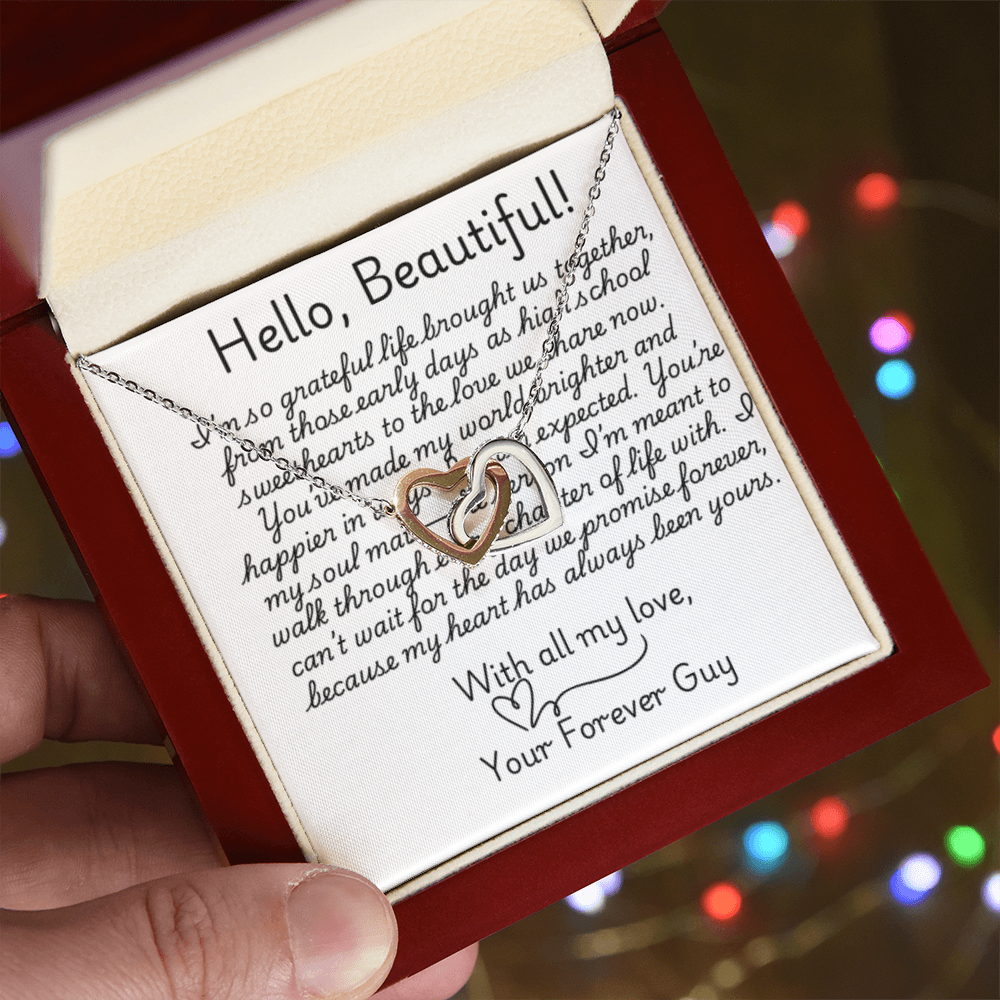 Hello, Beautiful!
I'm so grateful life brought us together,
from those early days as high school
sweethearts to the love we share now.
You've made my world brighter and
happier in ways expected. You're
my soul on I'm meant to
walk through chapter of life with. I
can't wait for the day we promise forever,
because my heart has always been yours.
With all my love,
Your Forever Guy